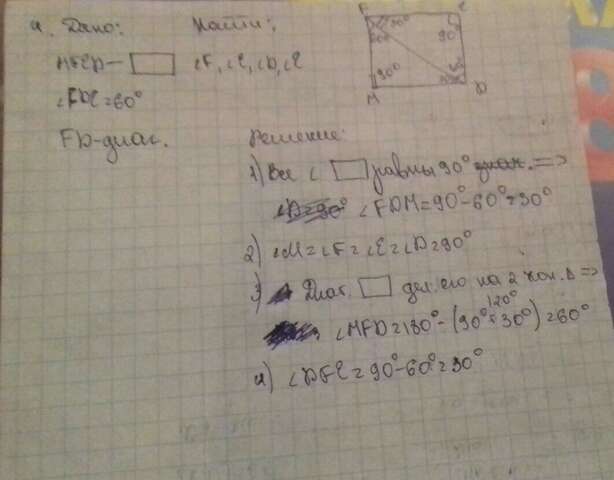 4. Дано: Найти:
MFED — ▭ ∠F, ∠E, ∠D, ∠E
∠FDE = 60°
FD - диаг.
F E
30°
60° 90°
90°
M D
Решение:
1) Все ∠ ▭ равны 90° =>
∠D = 90° ∠FDM = 90° - 60° = 30°
2) ∠M = ∠F = ∠E = ∠D = 90°
3) Диаг. ▭ дел. его на 2 Δ =>
120°
∠MFD = 180° - (90° + 30°) = 60°
4) ∠DFE = 90° - 60° = 30°